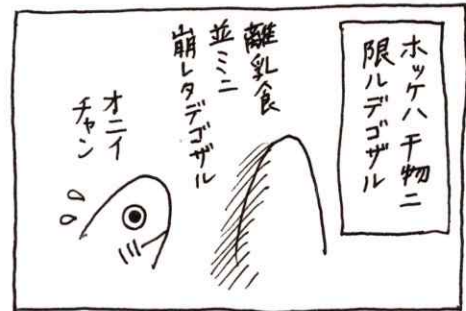 ホッケハ干物ニ
限ルデゴザル
離乳食
並ミニ
崩レタデゴザル
オニイ
チャン